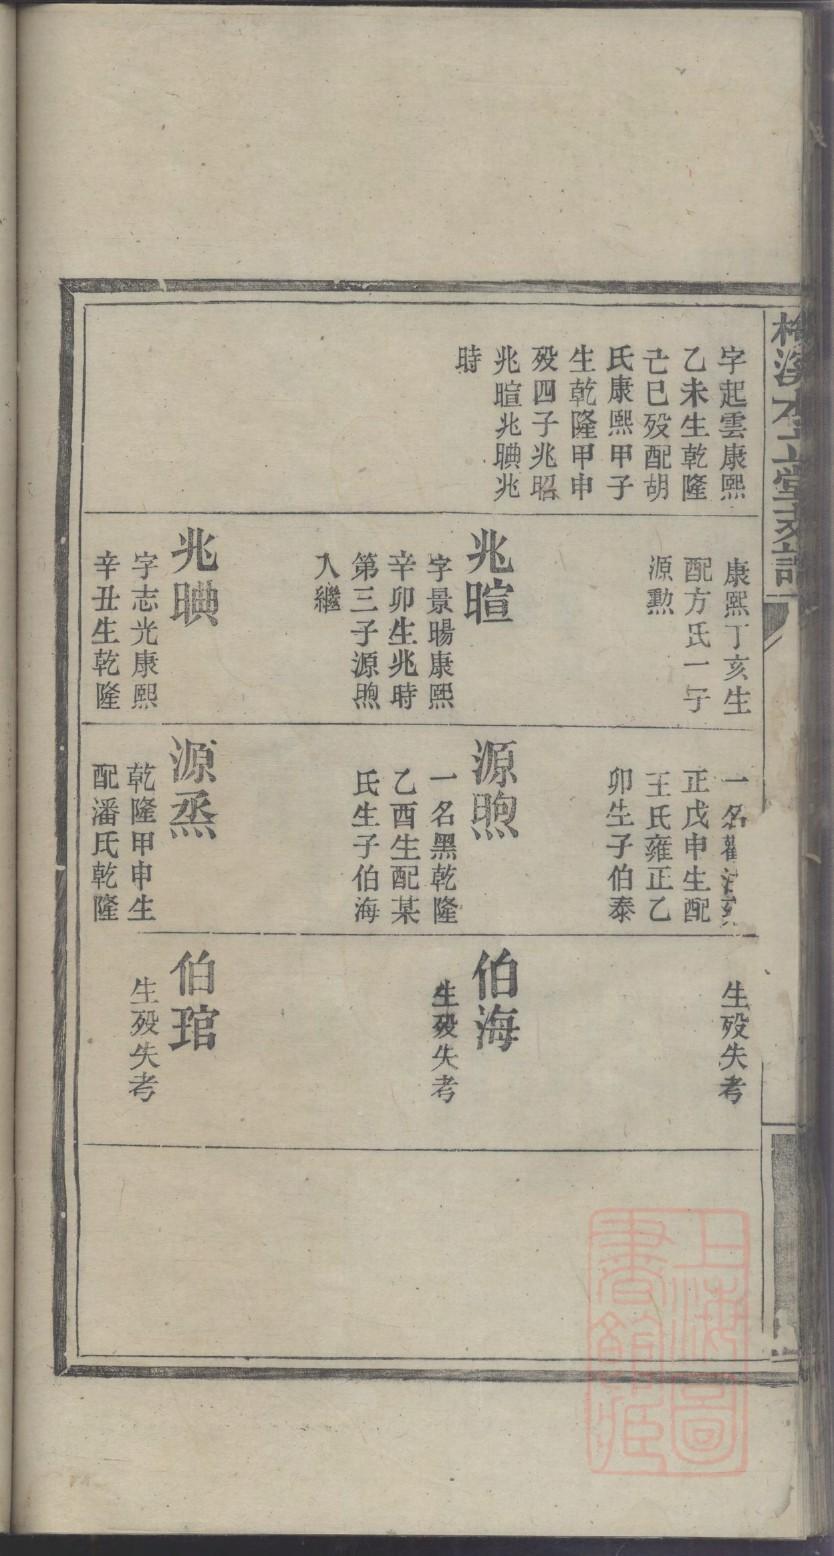 字起雲康熙
乙未生乾隆
己巳殁配胡
氏康熙甲子
生乾隆甲申
殁四子兆昭
兆暄兆晪兆
時
康熙丁亥生
配方氏一子
源勲
兆暄
字景暘康熙
辛卯生兆時
第三子源煦
入繼
兆晪
字志光康熙
辛丑生乾隆
一名
正戊申生配
王氏雍正乙
卯生子伯泰
源煦
一名黑乾隆
乙酉生配某
氏生子伯海
源烝
乾隆甲申生
配潘氏乾隆
生殁失考
伯海
生殁失考
伯琯
生殁失考
上海圖
書館藏